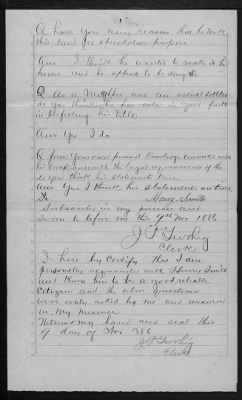 Q have you any reason that he wants
this land for speculation purpose
Ans I think he wants to make it his
home and he appears to be doing it
Q As a Neighbor and an actual settler
do you think he has acted in good faith
in perfecting his title.
Ans Yes I do
Q from your own personal knowledge connected with
his compliance with the legal requirements of the
do you think his statements true
Ans Yes I think his statements are true
Henry Smith
Subscribed in my presence and
sworn to before me this 9th Nov 1886
Clerk
I here by Certify that I am
personally acquainted with Henry Smith
and know him to be a good reliable
Citizen and the above questions
were orally asked by me and answered
in my presence
Witness my hand and seal this
9 day of Nov 886
Clerk